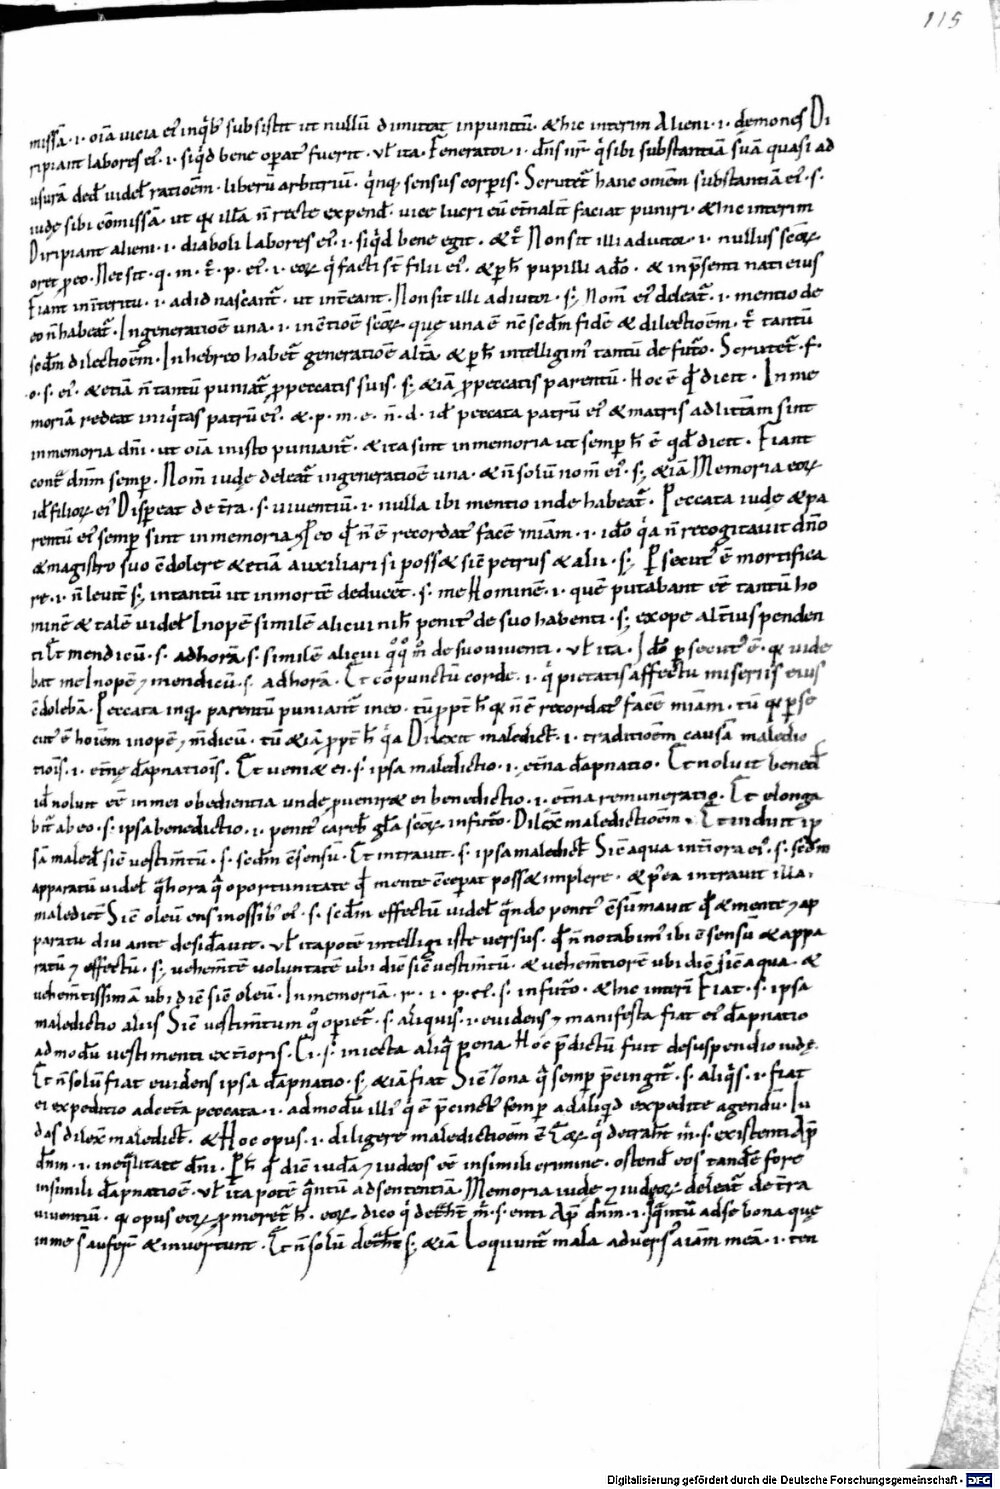 115
missā · i · oīa uicia ei' inq'b; subsistit ut nullū dimittat inpunitū · & hic interim Alieni · i · demones Di
ripiant labores ei' · i · siq'd bene opat' fuerit · ul' ita · Fenerator · i · dn̄s nr̄ q' sibi substantiā suā quasi ad
usurā ded' uidel' ratioēm · liberū arbitriū · q'nq; sensus corporis · Scrutet' hanc omēm substantiā ei' · s ·
iude sibi cōmissā · ut q illā n̄ recte expend' · uice lucri eū et'nalit' faciat puniri · & hic interim
Diripiant alieni · i · diaboli labores ei' · i · siq'd bene egit · & t' Non sit illi adiutor · i · nullus scōr
oret p eo · Nec sit · q · m · t' · p · ei' · i · eor q' facti st̄ filii ei' · & p h' pupilli a dō · & in p'senti nati eius
Fiant in int'itu · i · ad id nascant' · ut int'eant · Non sit illi adiutor · s; Nom̄ ei' deleat' · i · mentio de
eo n̄ habeat' · In generatioē una · i · in c̄tioē scōr · que una ē n̄c sedm̄ fidē & dilectioēm · t' tantū
sedm̄ dilectioēm · In hebreo habet' generatioē alt'a · & p h' intelligim' tantū de fut'o · Scrutet' · f ·
o · s · ei' · & etiā n̄ tantū puniat' p peccatis suis · s; & iā p peccatis parentū · Hoc ē q' dicit · In me
moriā redeat iniq'tas patrū ei' · & · p · m · e · n̄ · d · id' peccata patrū ei' & matris ad litt'am sint
in memoria dn̄i · ut oīa in isto puniant' · & ita sint in memoria ut semp h' ē qd' dicit · Fiant
cont' dn̄m semp · Nom̄ iude deleat' in generatioē una · & n̄ solū nom̄ ei' · s; & iā Memoria eor
id' filior ei' Dispeat de t'ra · s · uiuentiū · i · nulla ibi mentio inde habeat' · Peccata iude & pa
rentū ei' semp sint in memoria P eo q' n̄ ē recordat' facē miām · i · idō q'a n̄ recogitauit dn̄o
& magistro suo c̄dolere & etiā auxiliari si poss& sic̄ petrus & alii · s; Psecut' ē mortifica
re · i · n̄ leuit' s; in tantū ut in mortē deducēt · s · me Hominē · i · quē putabant eē tantū ho
minē & talē uidel' Inopē similē alicui nih' penit' de suo habenti · s; ex ope alt'ius penden
ti Et mendicū · s · ad horā · s · similē alicui q°q° m° de suo uiuenti · ul' ita · Idō psecut' ē · q uide
bat me Inopē 7 mendicū · s · ad horā · Et cōpunctū corde · i · q' pietatis affectu miseriis eius
c̄dolebā · Peccata inq; parentū puniant' in eo · tū ppt' h' q n̄ ē recordat' facē miām · tū q pse
cut' ē hoiēm inopē 7 m̄dicū · tū & iā ppt' h' q'a Dilexit maledict' · i · traditioēm causā maledic
tiōis · i · et'ne dāpnatiōis · Et ueni& ei · s · ipsa maledictio · i · et'na dāpnatio · Et noluit bened'
id' noluit eē in mei obedientia unde puenir& ei benedictio · i · et'na remuneratio · Et elonga
bit' ab eo · s · ipsa benedictio · i · penit' careb' gl'a scōr in fut'o · Dilex' maledictioēm · Et induit ip
sā maled' sic̄ uestim̄tū · s · sedm̄ c̄sensū · Et intrauit · s · ipsa maledict' Sic̄ aqua int'iora ei' · s · sedm̄
apparatū uidel' q'hora q' oportunitate q' mente c̄ceperat poss& implere · & p'ea intrauit illa
maledict' Sic̄ oleū eius in ossib; ei' · s · sedm̄ effectū uidel' q'ndo penit' c̄sumauit q' & mente 7 ap
paratu diu ante desid'auit · ul' ita potē intelligi iste uersus · q' n̄ notabim' ibi c̄sensū & appa
ratū 7 effectū · s; uehem̄tē uoluntatē ubi dic̄ sic̄ uestim̄tū · & uehem̄tiorē ubi dic̄ sic̄ aqua · &
uehem̄tissimā ubi dic̄ sic̄ oleū · In memoriā · r · i · p · ei' · s · in fut'o · & hic inter' Fiat · s · ipsa
maledictio aliis Sic̄ uestim̄tum q° opiet' · s · aliquis · i · euidens 7 manifesta fiat ei' dāpnatio
ad modū uestimenti ext'ioris · Ei · s · iniecta aliq' pena Hoc p'dictū fuit de suspendio iude ·
Et n̄ solū fiat euidens ipsa dāpnatio · s; & iā fiat Sic̄ zona q' semp p'cingit' · s · aliq's · i · fiat
ei expeditio ad cet'a peccata · i · ad modū illi' q' ē p'cinct' semp ad aliq'd expedite agendū · Iu
das dilex' maledict' · & Hoc opus · i · diligere maledictioēm ē Eor q' detrah't m' · s · existenti Ap'
dn̄m · i · in eq'litate dn̄i · P h' q' dic̄ iudā 7 iudeos eē in simili crimine · ostend' eos tandē fore
in simili dāpnatioē · ul' ita potē q'ntū ad sententiā · Memoria iude 7 iudeor deleat' de t'ra
uiuentiū · q opus eor pmeret' h' · eor dico q' det'h't m' · s · enti Ap' dn̄m · i · q'ntū ad se bona que
in me s' auferr' & inuertunt · Et n̄ solū det'h't s; & iā Loquunt' mala aduers' aīam meā · i · ten
Digitalisierung gefördert durch die Deutsche Forschungsgemeinschaft - DFG